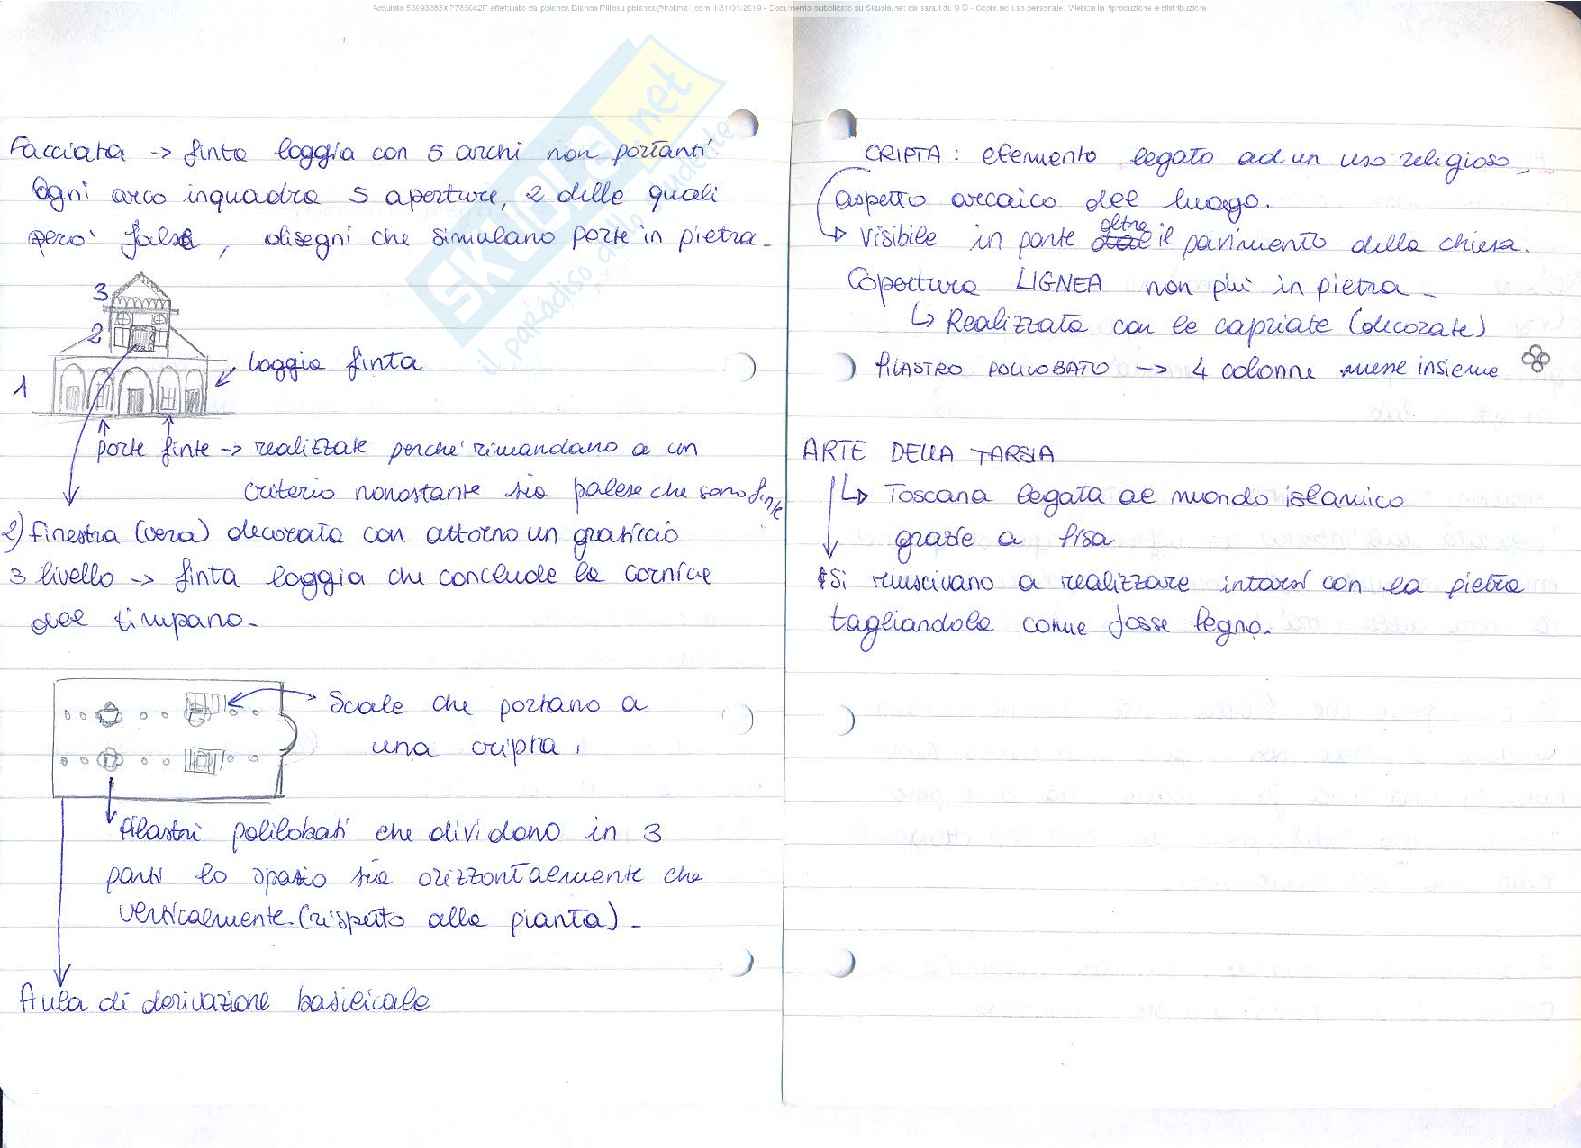 Facciata -> finta loggia con 5 archi non portanti
Ogni arco inquadra 5 aperture, 2 delle quali
pero' false, disegni che simulano porte in pietra.
3
2
1
loggia finta
porte finte -> realizzate perché rimandano a un
criterio nonostante sia palese che sono finte
2) finestra (vera) decorata con attorno un graticcio
3 livello -> finta loggia che conclude la cornice
del timpano.
Scale che portano a
una cripta.
Pilastri polilobati che dividono in 3
parti lo spazio sia orizzontalmente che
verticalmente. (rispetto alla pianta).
Aula di derivazione basilicale
CRIPTA: elemento legato ad un uso religioso,
aspetto arcaico del luogo.
Visibile in parte oltre il pavimento della chiesa.
Copertura LIGNEA non più in pietra.
Realizzata con le capriate (decorate)
PILASTRO POLILOBATO -> 4 colonne messe insieme
ARTE DELLA TARSIA
Toscana legata al mondo islamico
grazie a Pisa
Si riuscivano a realizzare intarsi con la pietra
tagliandola come fosse legno.
SKUOLA.net
il paradiso dello studente